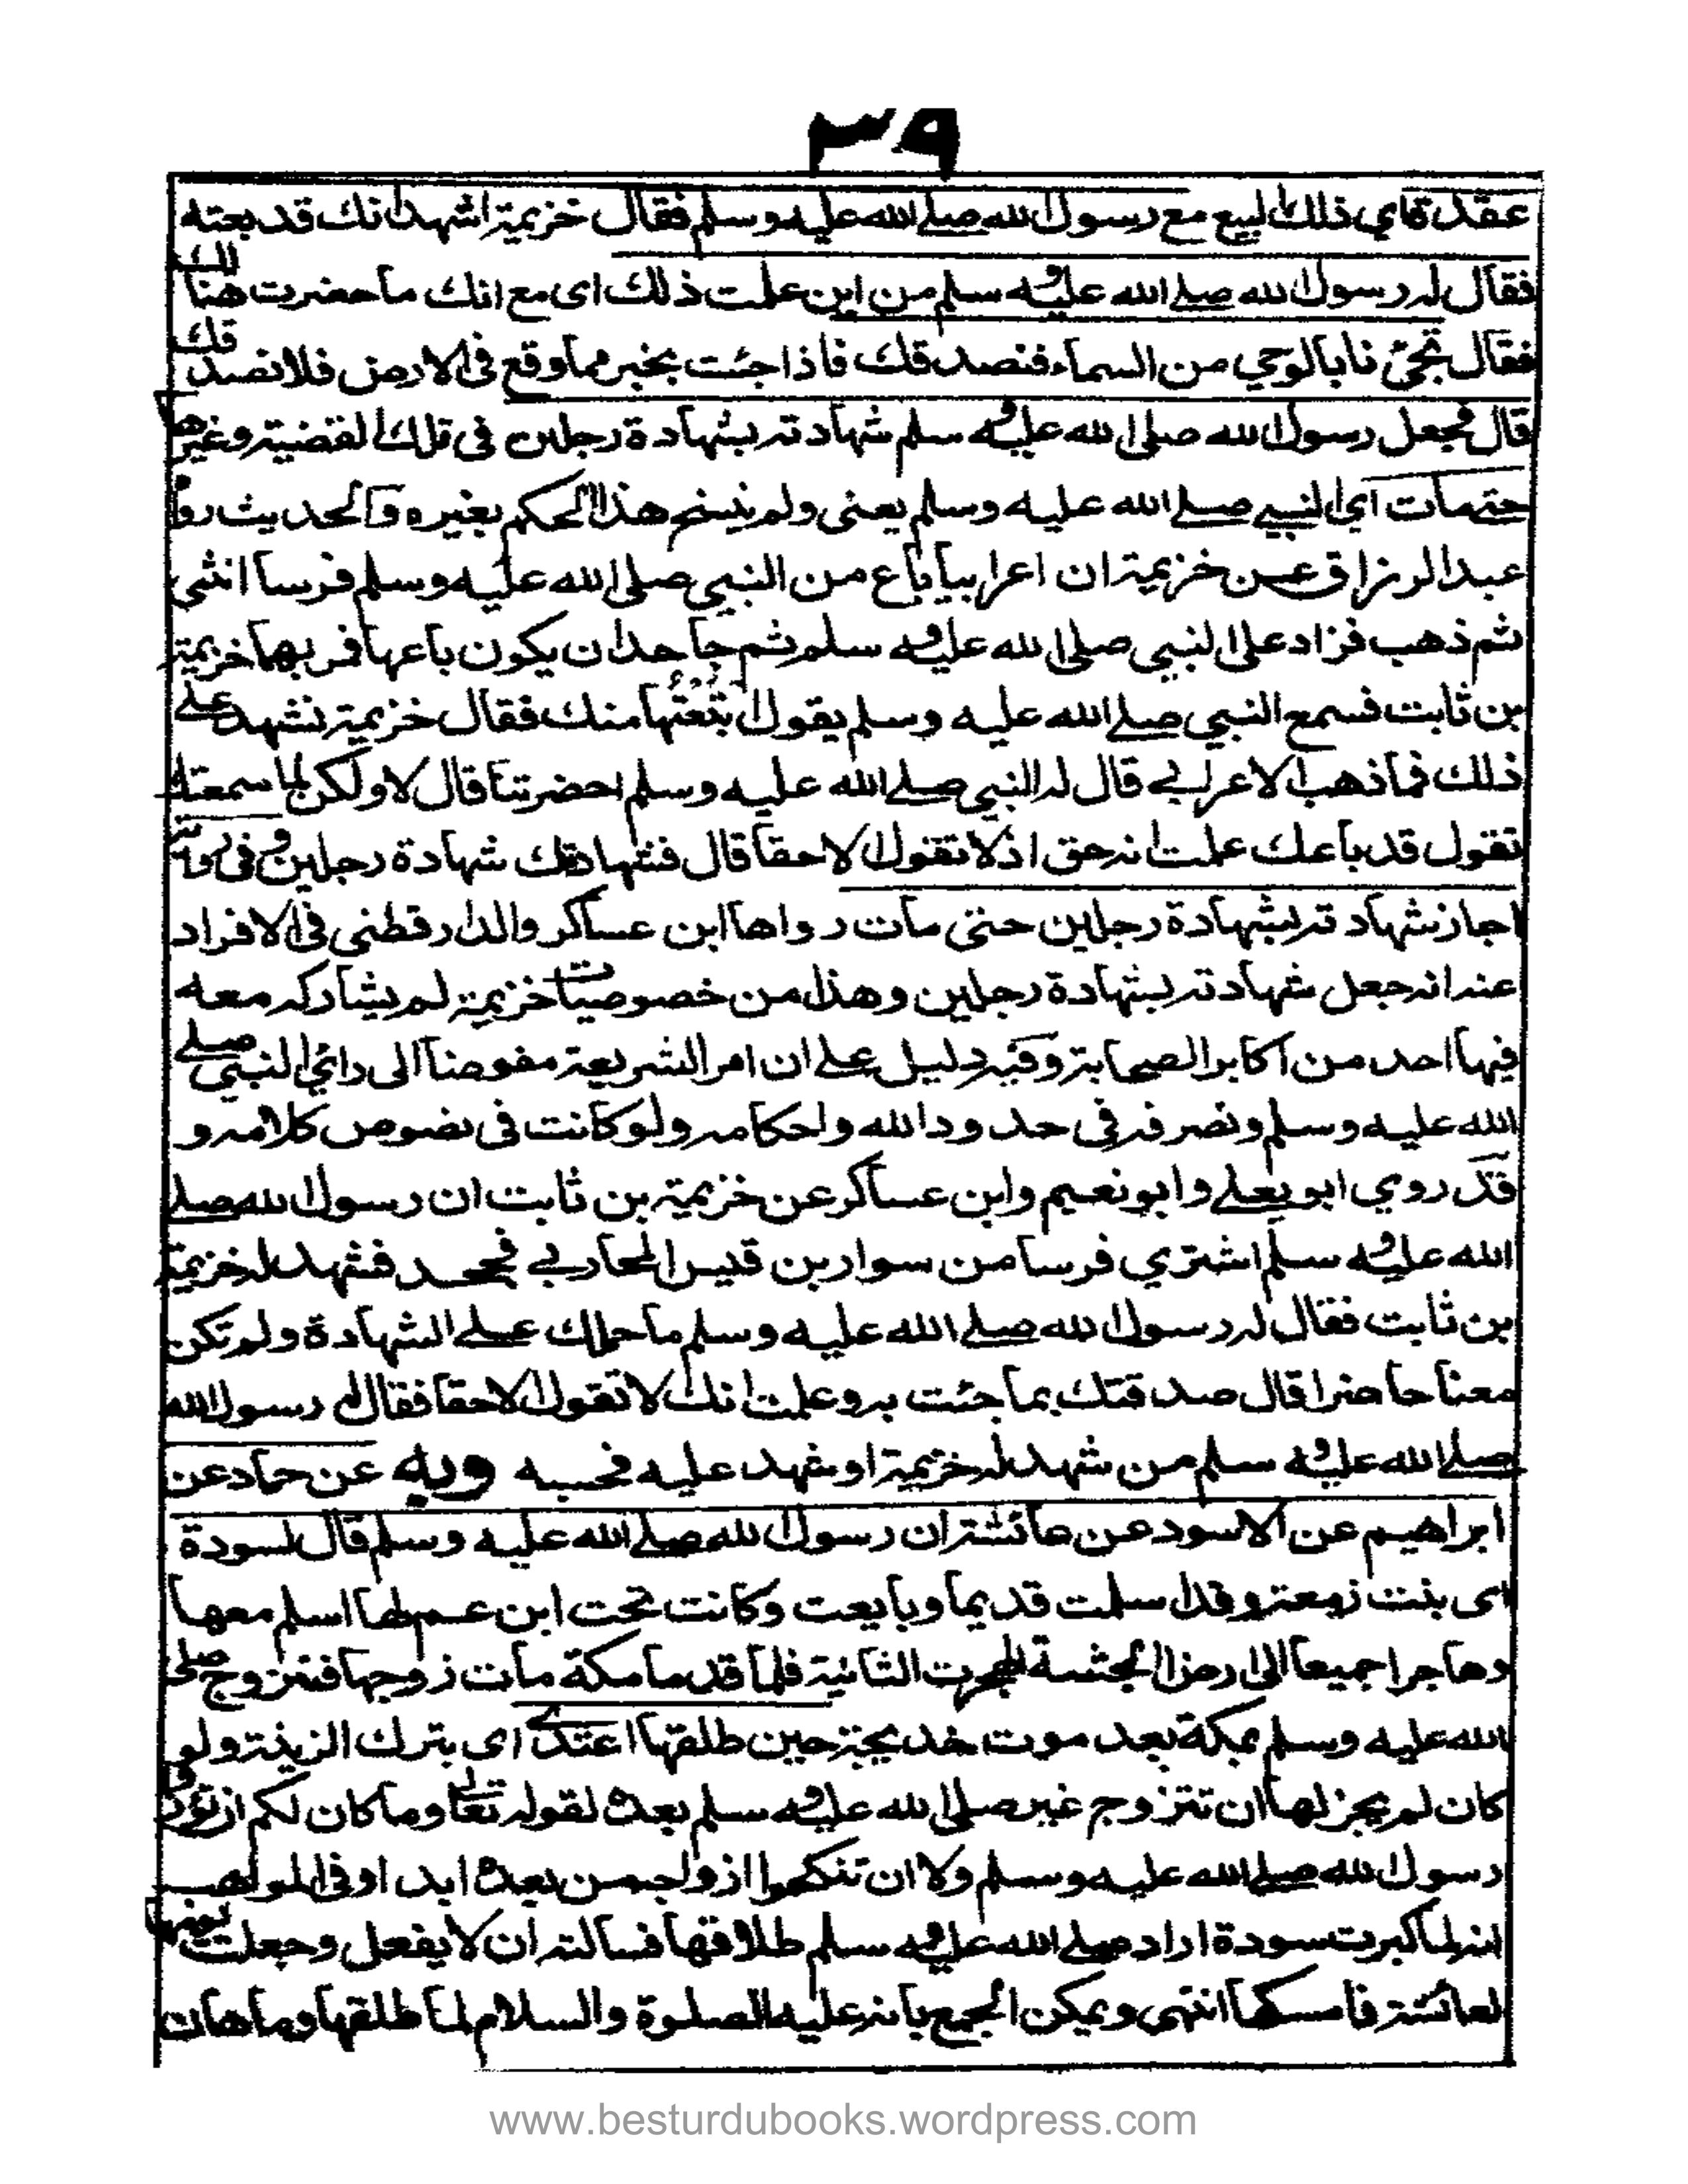 ٣٩
عقدة اي ذلك البيع مع رسول الله صلے الله عليه وسلم فقال خزيمة اشهد انك قد بعته
فقال له رسول الله صلے الله عليه وسلم من اين علمت ذلك اى مع انك ما حضرت هنالك
فقال تجئ نا بالوحي من السماء فنصدقك فاذا جئت بخبر مما وقع فى الارض فلا نصدقك
قال فجعل رسول الله صلى الله عليه وسلم شهادته بشهادة رجلين فى تلك القضية وغيرها
حتے مات اي النبي صلے الله عليه وسلم يعنى ولم ينسخ هذا الحكم بغيره والحديث رواه
عبد الرزاق عن خزيمة ان اعرابيا باع من النبي صلى الله عليه وسلم فرسا انثى
ثم ذهب فزاد على النبي صلى الله عليه وسلم ثم جاحد ان يكون باعها فمر بهما خزيمة
بن ثابت فسمع النبي صلے الله عليه وسلم يقول ابتعتها منك فقال خزيمة نشهد علے
ذلك فما ذهب الاعرابے قال له النبي صلے الله عليه وسلم احضرتنا قال لا ولكن لما سمعتك
تقول قد باعك علمت انه حق اذ لا تقول الا حقا قال فشهادتك شهادة رجلين وفى رواية
اجاز شهادته بشهادة رجلين حتى مات رواها ابن عساكر والدارقطنى فى الافراد
عنه انه جعل شهادته بشهادة رجلين وهذا من خصوصيات خزيمة لم يشاركه معه
فيها احد من اكابر الصحابة وفيه دليل علے ان امر الشريعة مفوضا الى رائي النبي صلے
الله عليه وسلم وتصرفه في حدود الله واحكامه ولو كانت فى نصوص كلامه و
قد روي ابو يعلے وابو نعيم وابن عساكر عن خزيمة بن ثابت ان رسول الله صلے
الله عليه وسلم اشتري فرسا من سوار بن قيس المحاربے فجحد فشهد له خزيمة
بن ثابت فقال له رسول الله صلے الله عليه وسلم ما حملك علے الشهادة ولم تكن
معنا حاضرا قال صدقتك بما جئت به وعلمت انك لا تقول الا حقا فقال له رسول الله
صلے الله عليه وسلم من شهد له خزيمة او شهد عليه فحسبه وبه عن حماد عن
ابراهيم عن الاسود عن عائشة ان رسول الله صلے الله عليه وسلم قال لسودة
اى بنت زمعة وقد اسلمت قديما وبايعت وكانت تحت ابن عم لها اسلم معها
وهاجرا جميعا الى ارض الحبشة الهجرت الثانية فلما قدما مكة مات زوجها فتزوج صلى
الله عليه وسلم بمكة بعد موت خديجة حين طلقها اعتدے اى بترك الزينة ولو
كان لم يجز لها ان تتزوج غيره صلى الله عليه وسلم بعده لقوله تعالى وما كان لكم ان تؤذوا
رسول الله صلے الله عليه وسلم ولا ان تنكحوا ازواجه من بعده ابدا وفى المواهب
انه لما كبرت سودة اراد صلے الله عليه وسلم طلاقها فسألته ان لا يفعل وجعلت يومها
لعائشة فامسكها انتهى ويمكن الجمع بانه عليه الصلوة والسلام لما طلقها وما هان
www.besturdubooks.wordpress.com